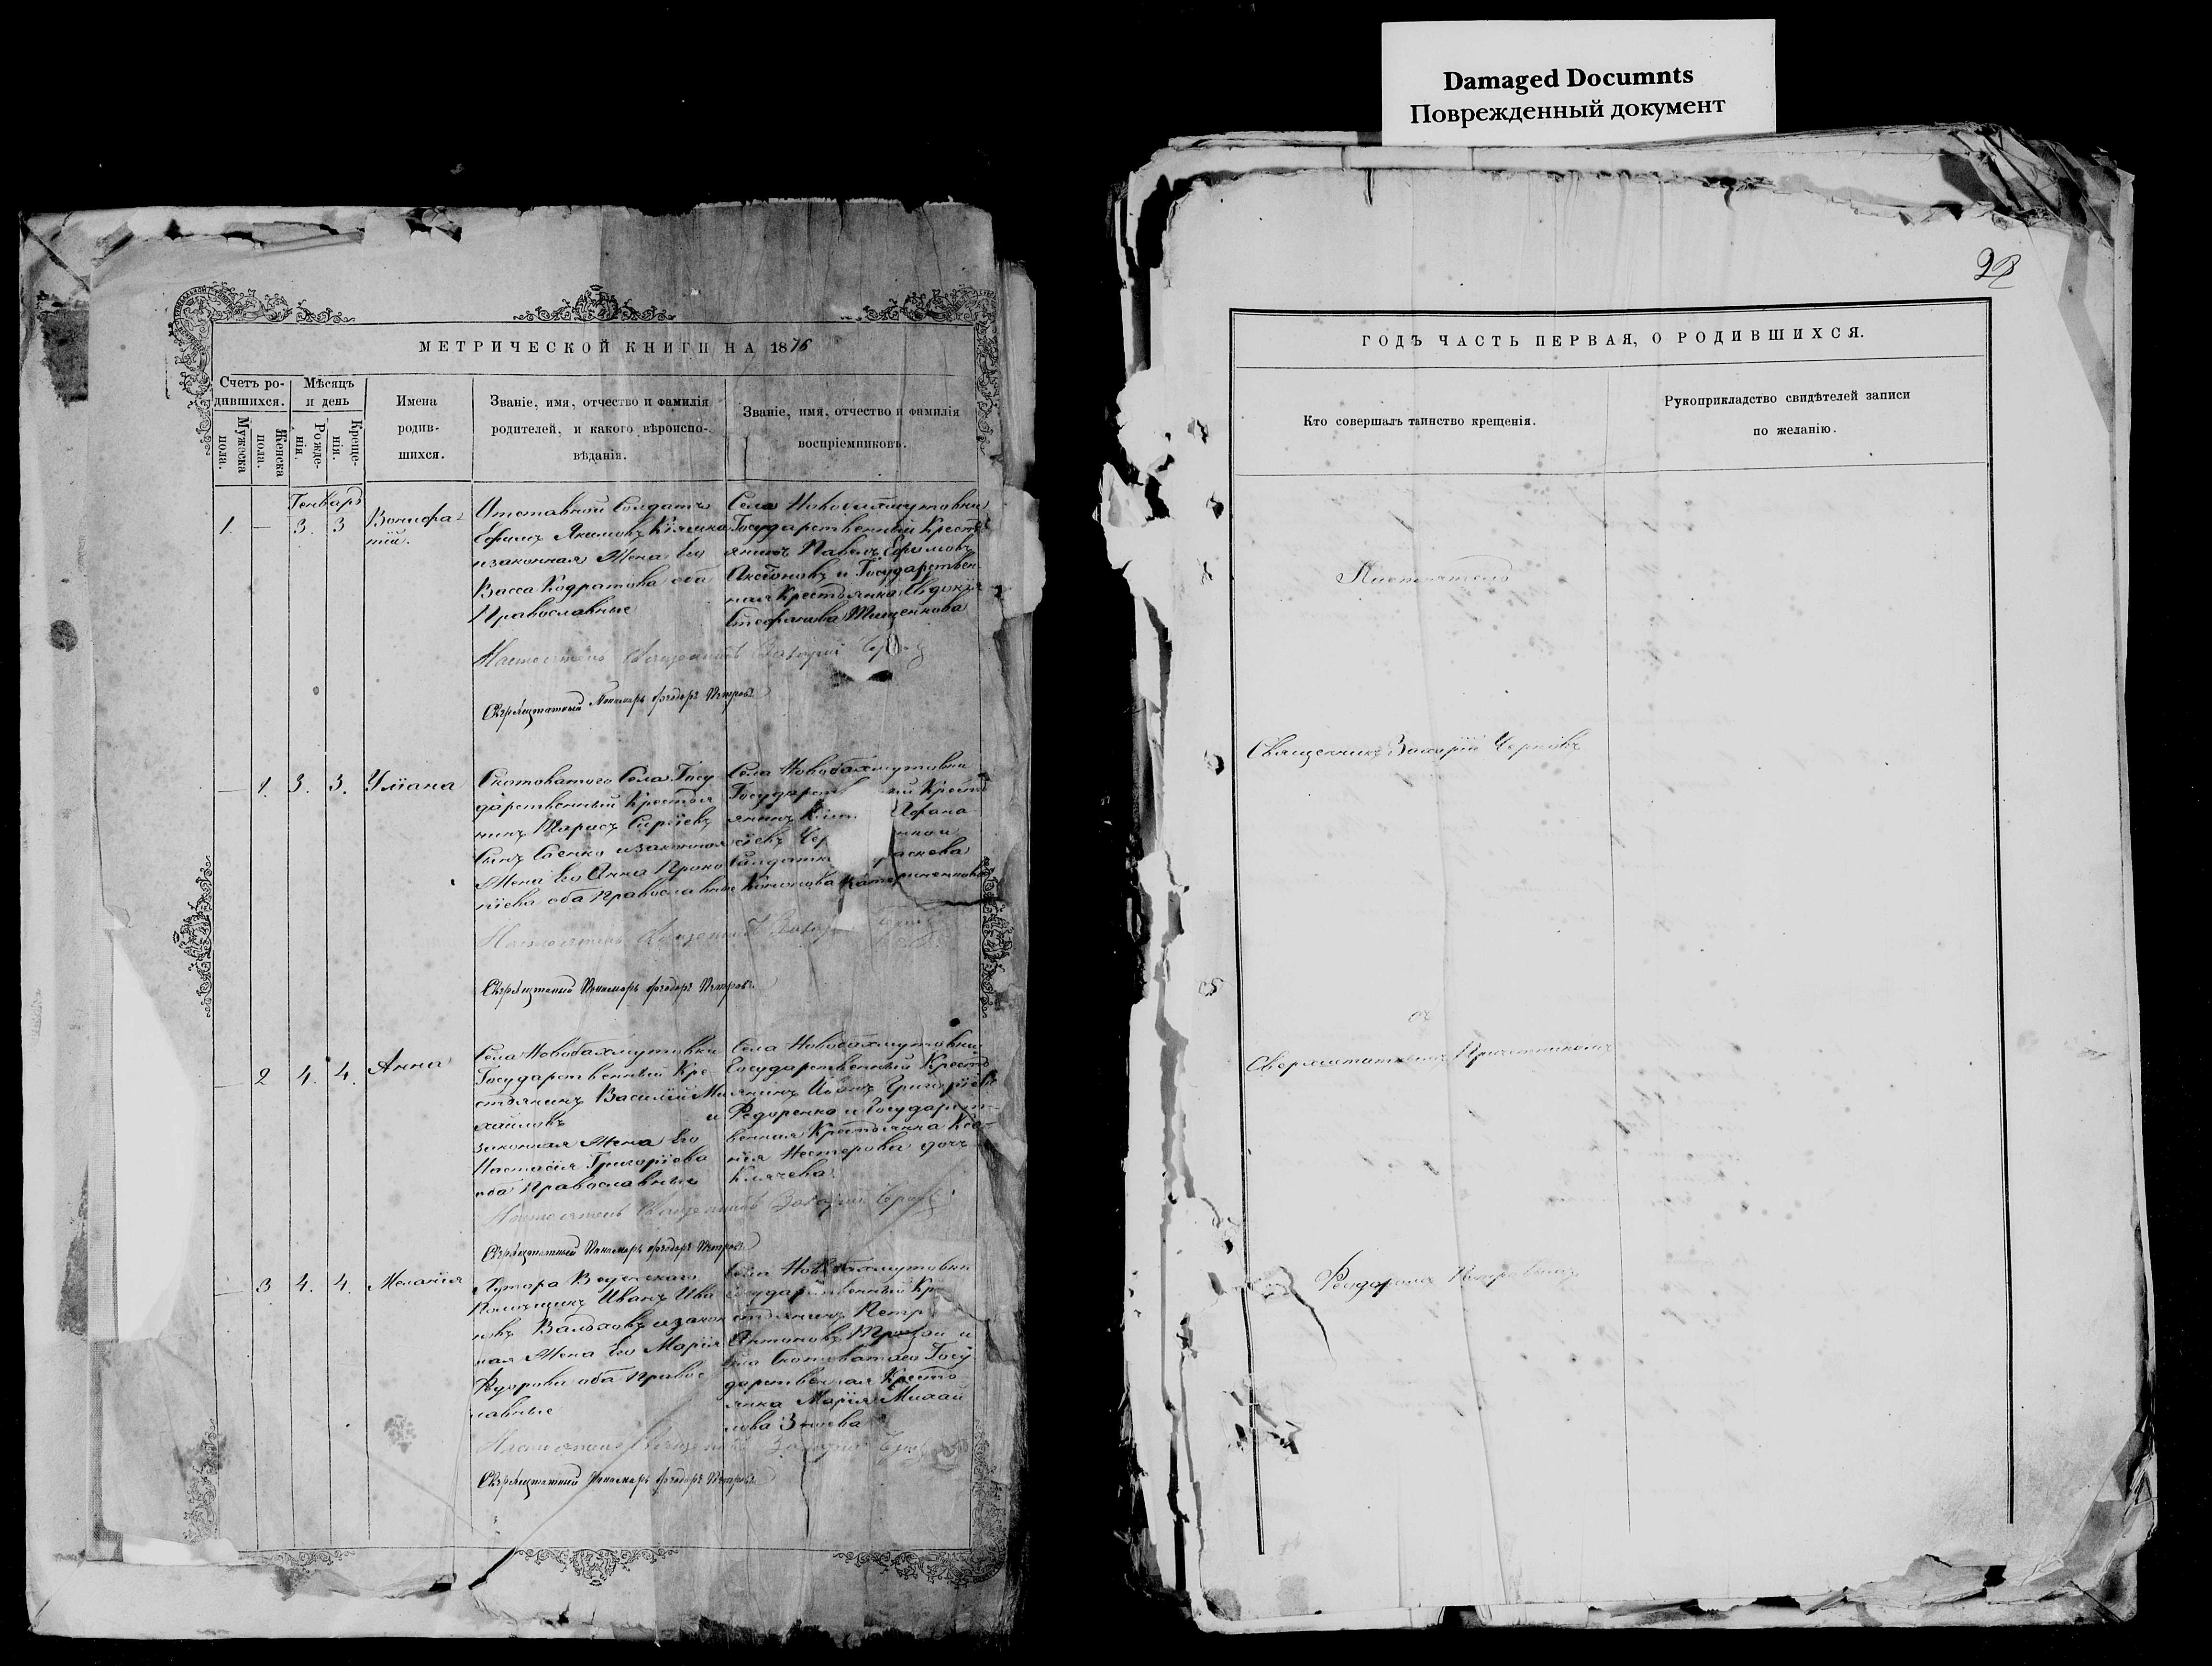 Damaged Documnts
Поврежденный документ
МЕТРИЧЕСКОЙ КНИГИ НА 1876
Счетъ ро-
дившихся.
Мужеска
пола.
Женска
пола.
Мѣсяцъ
и день
Рожде-
нія.
Креще-
нія.
Имена
родив-
шихся.
Званіе, имя, отчество и фамилія
родителей, и какого вѣроиспо-
вѣданія.
Званіе, имя, отчество и фамилія
воспріемниковъ.
Генварь
1. — 3. 3 Вонифа-
тій.
Отставной Солдатъ
Ефимъ Якимовъ
и законная Жена Его
Васса Кодратова оба
Православные
Села Новобахмутовки
Государственный Кресть
янинъ Павелъ Ефимовъ
Аксіоновъ и Государствен
ная Крестьянка Евдокія
Стефанова Тищенкова
Настоятель Священникъ Захарій
Сверхштатный Пономарь Феодоръ Петровъ
— 1. 3. 3. Уліана
Скотоватого Села Госу
дарственный Крестья
нинъ Тарасъ Сергіевъ
Сынъ Саенко и законная
Жена Его Анна Проко
піева оба Православные
Села Новобахмутовки
Государств ый Кресть
янинъ Афана
сіевъ Чер
Солдатка
Кононова
Настоятель Священникъ
Сверхштатный Пономарь Феодоръ Петровъ
— 2 4. 4. Анна
Села Новобахмутовки
Государственный Кре-
стьянинъ Василій Ми
хайловъ и
законная Жена Его
Настасія Григоріева
оба Православные
Села Новобахмутовки
Государственный Кресть
янинъ Іоанъ Григоріевъ
Федоренко и Государст-
венная Крестьянка
нія Нестерова дочь
Клячева
Настоятель Священникъ Захарій
Сверхштатный Пономарь Феодоръ Петровъ
— 3 4. 4. Меланія
Хутора
Помѣщикъ Иванъ Ива
новъ и закон
ная Жена Его Марія
Федорова оба Правос
лавные
Села Новобахмутовки
Государственный Кр
стьянинъ Петр
Антоновъ и
Села Скотоватаго Госу
дарственная Кресть
янка Марія Михай
лова
Настоятель Священникъ Захарій
Сверхштатный Пономарь Феодоръ Петровъ
ГОДЪ ЧАСТЬ ПЕРВАЯ, О РОДИВШИХСЯ.
Кто совершалъ таинство крещенія.
Рукоприкладство свидѣтелей записи
по желанію.
Настоятель
Священникъ Захарій Черновъ
съ
Сверхштатнымъ Причетникомъ
Феодоромъ Петровымъ